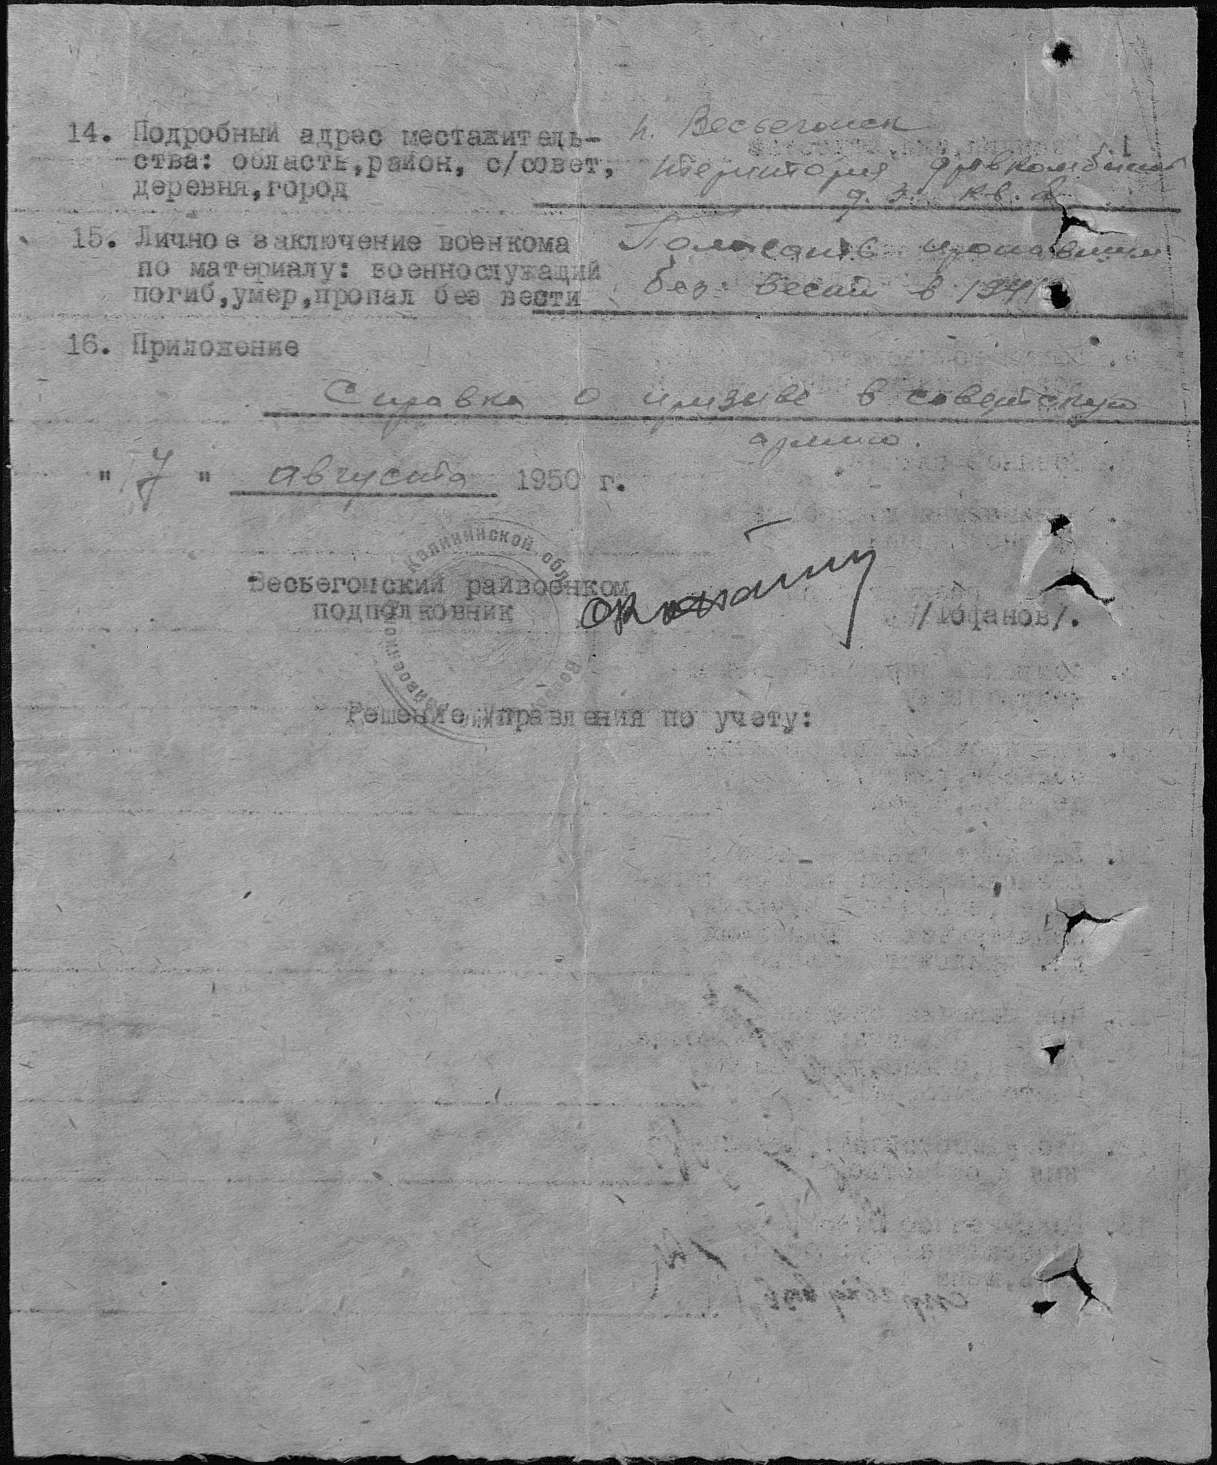 14. Подробный адрес местажитель-
ства: область, район, с/совет,
деревня, город
п. Весьегонск
территория
д. 3. кв. 2
15. Личное заключение военкома
по материалу: военнослужащий
погиб, умер, пропал без вести
пропавшим
без вести в 1941
16. Приложение
Справка о призыве в советскую
армию.
" 17 " августа 1950 г.
Калининской обл.
Весьегонский райвоенком
подполковник
/Тофанов/.
Решение Управления по учету: